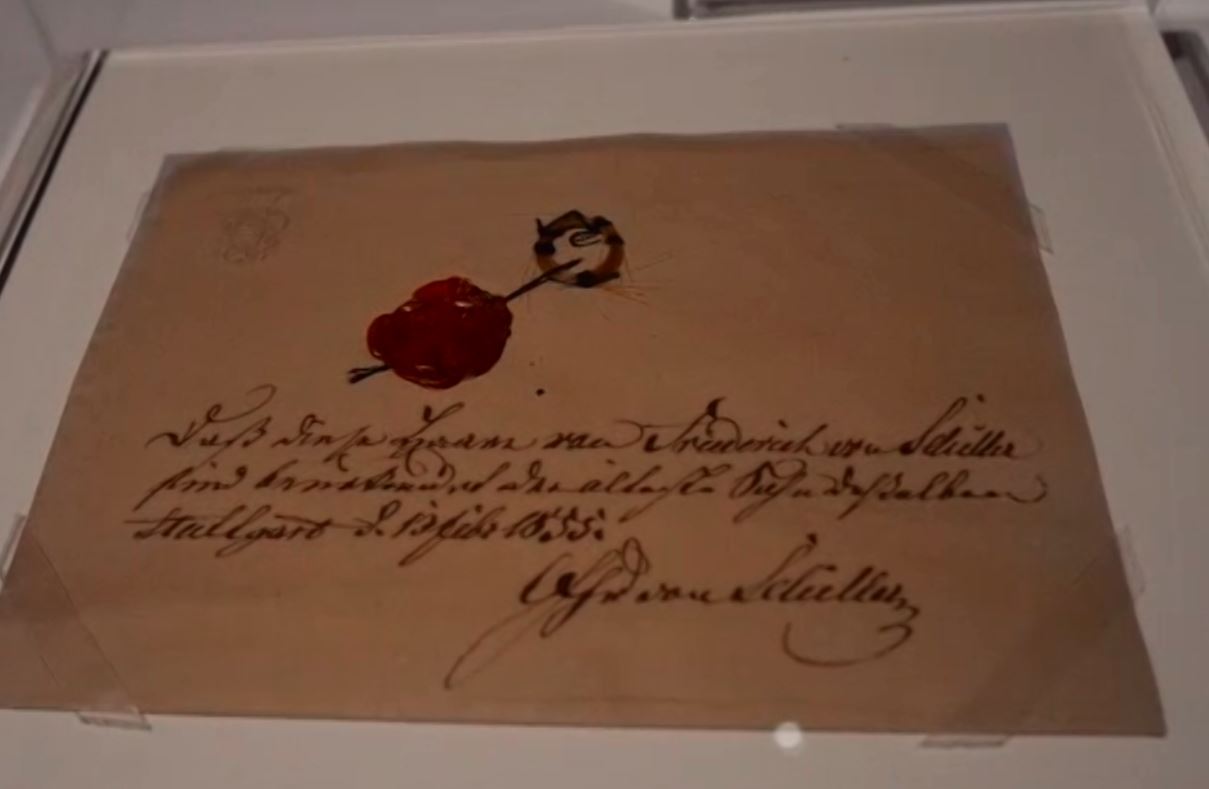 Daß diese Haare von Friederich von Schiller
sind beurkundet der älteste Sohn desselben
Stuttgart d. 13 Feb 1855.
von Schiller